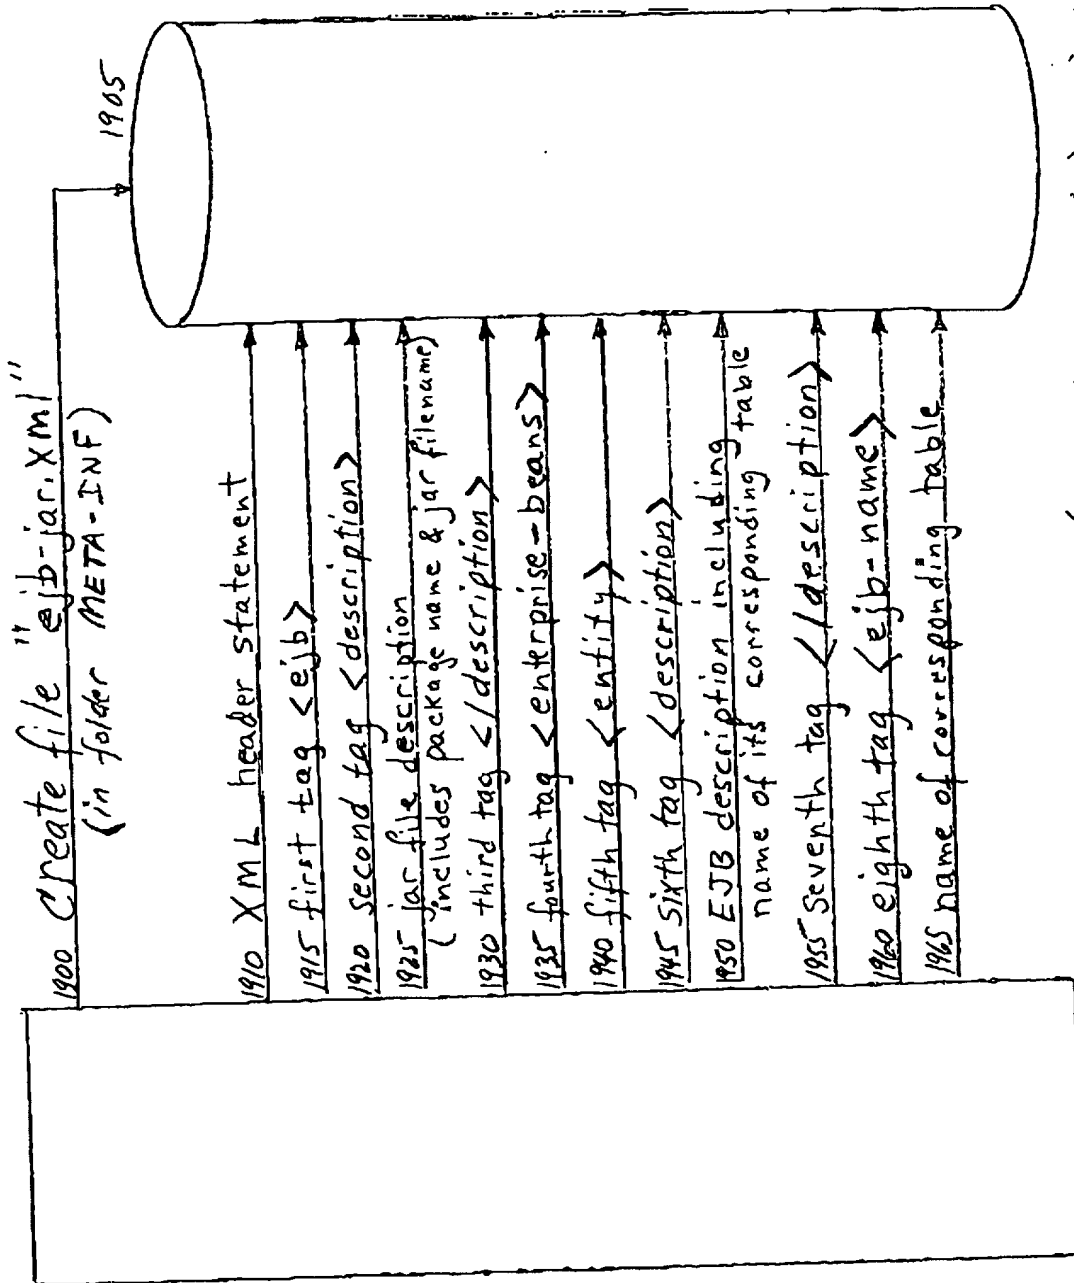 1900 Create file "ejb-jar.xml"
(in folder META-INF)
1905
1910 XML header statement
1915 first tag <ejb>
1920 second tag <description>
1925 jar file description
(includes package name & jar filename)
1930 third tag </description>
1935 fourth tag <enterprise-beans>
1940 fifth tag <entity>
1945 sixth tag <description>
1950 EJB description including
name of its corresponding table
1955 Seventh tag </description>
1960 eighth tag <ejb-name>
1965 name of corresponding table